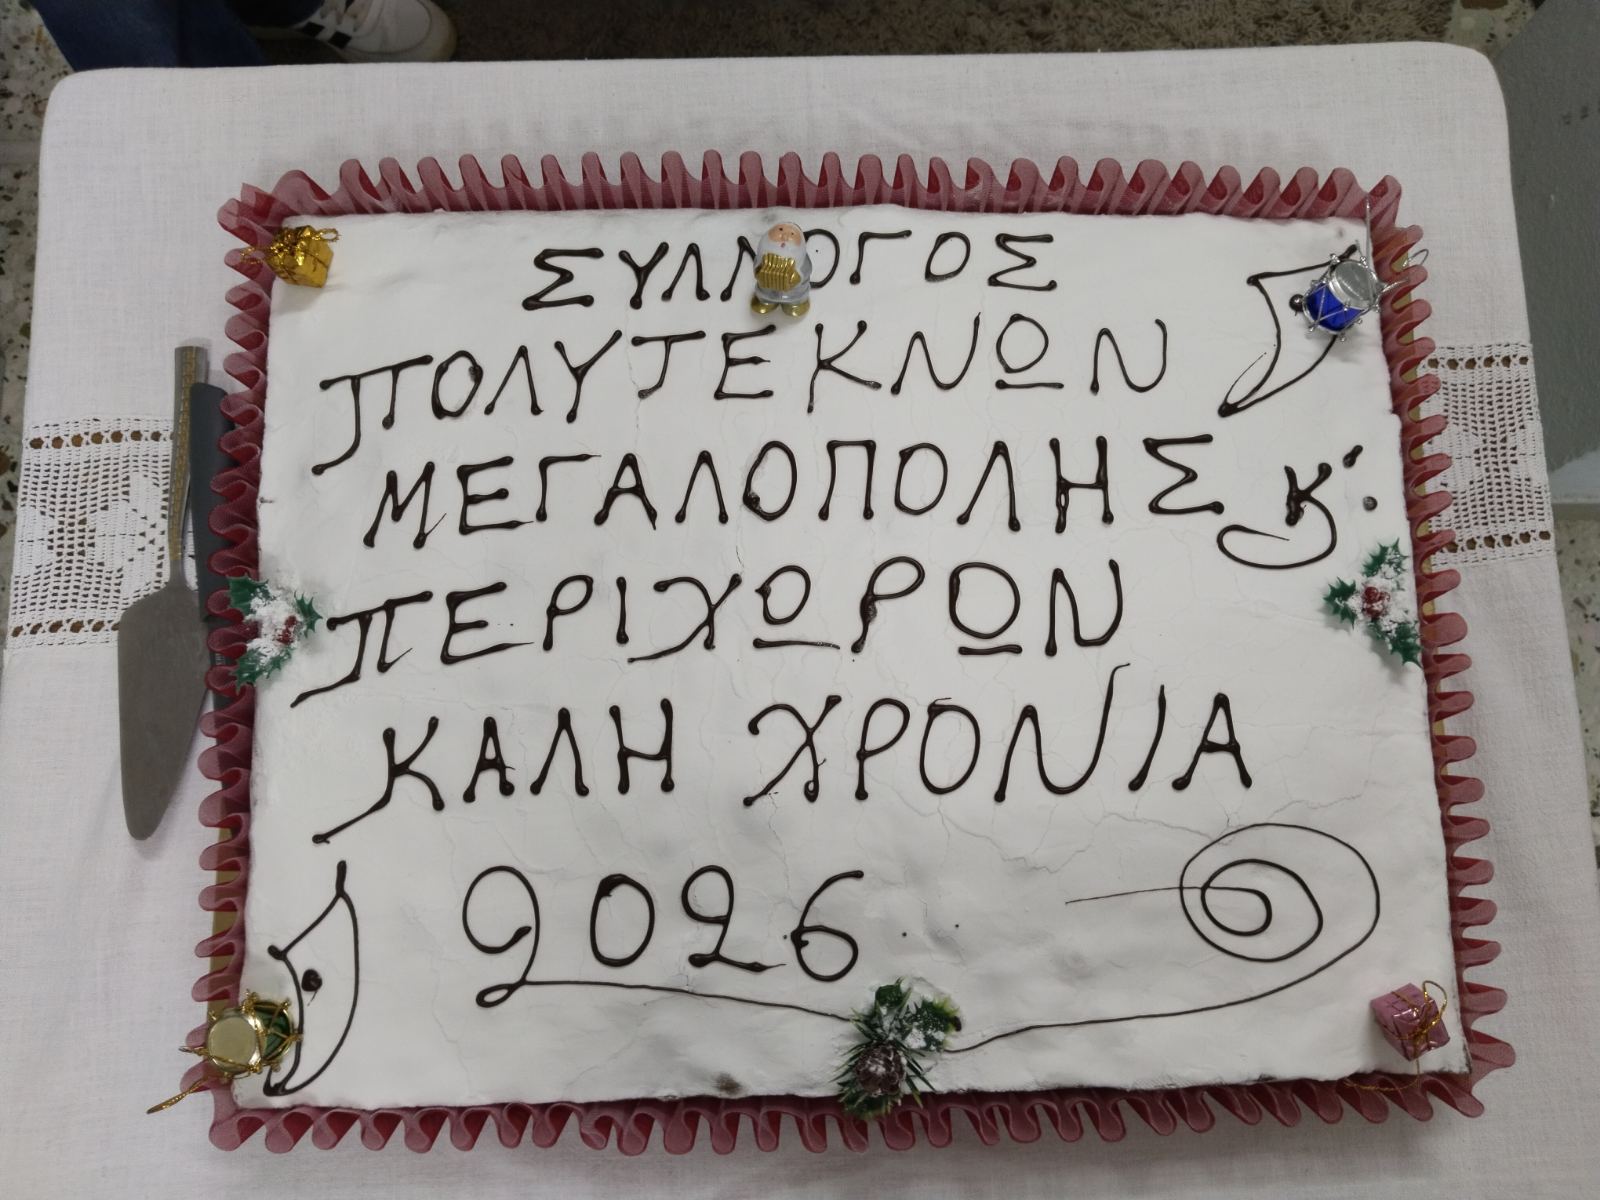 ΣΥΛΛΟΓΟΣ
ΠΟΛΥΤΕΚΝΩΝ
ΜΕΓΑΛΟΠΟΛΗΣ κ'
ΠΕΡΙΧΩΡΩΝ
ΚΑΛΗ ΧΡΟΝΙΑ
2026